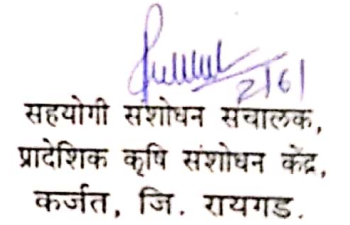 2/6/
सहयोगी संशोधन संचालक,
प्रादेशिक कृषि संशोधन केंद्र,
कर्जत, जि. रायगड.